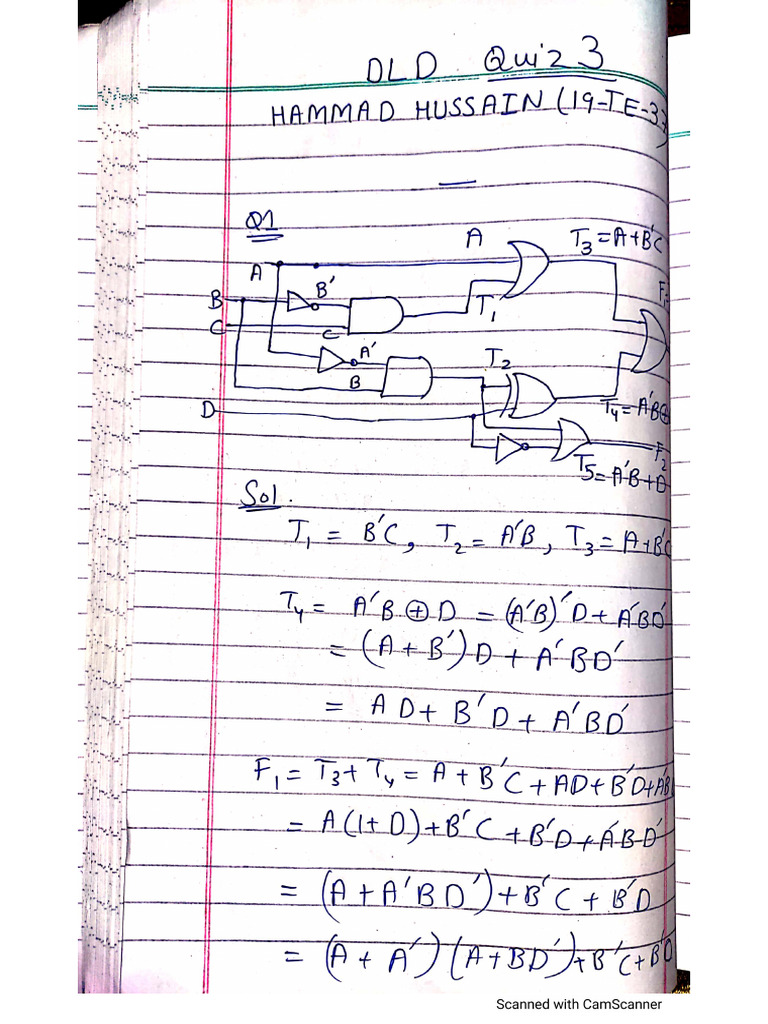 DLD Quiz 3
HAMMAD HUSSAIN (19-TE-37
Q1
A
T3 = A+B'C
A
B'
B
C
C
T1
F1
A'
B
T2
D
T4 = A'B⊕
F2
T5 = A'B+D
Sol.
T1 = B'C, T2 = A'B, T3 = A+B'C
T4 = A'B ⊕ D = (A'B)'D + A'BD'
= (A+B')D + A'BD'
= AD + B'D + A'BD'
F1 = T3 + T4 = A + B'C + AD + B'D + A'B
= A(1+D) + B'C + B'D + A'BD'
= (A + A'BD') + B'C + B'D
= (A + A')(A+BD') + B'C + B'D
Scanned with CamScanner